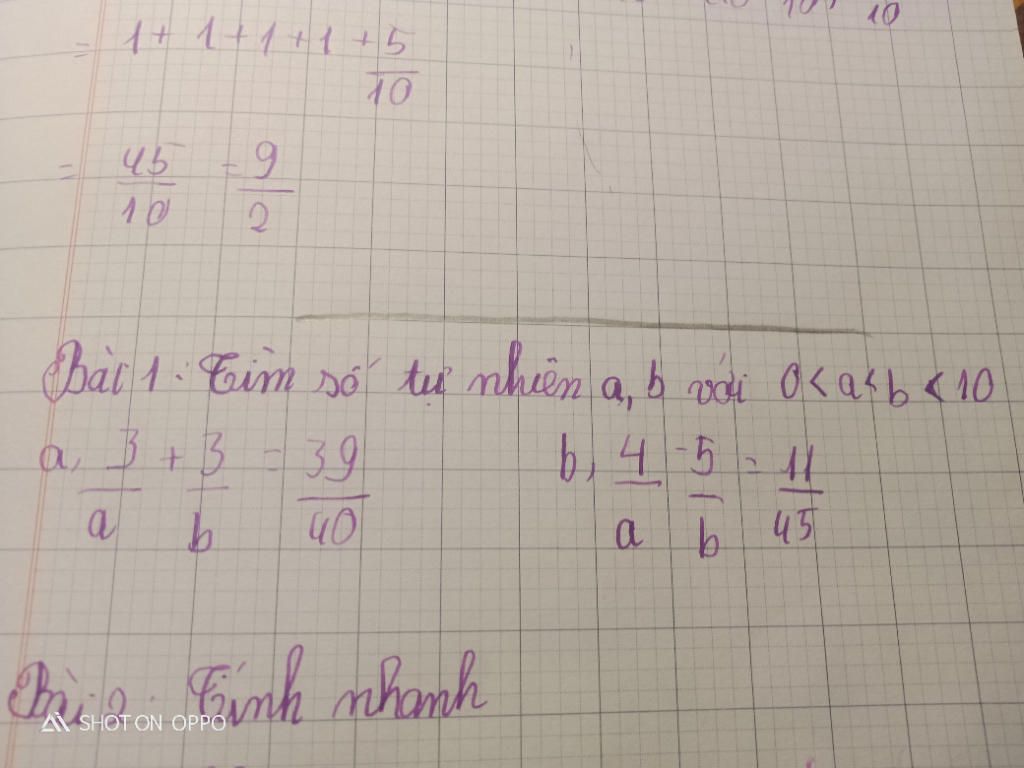 10, 10
= 1 + 1 + 1 + 1 + 5/10
= 45/10 = 9/2
Bài 1: Tìm số tự nhiên a, b với 0 < a < b < 10
a, 3/a + 3/b = 39/40
b, 4/a - 5/b = 11/45
Bài 2: Tính nhanh
SHOT ON OPPO